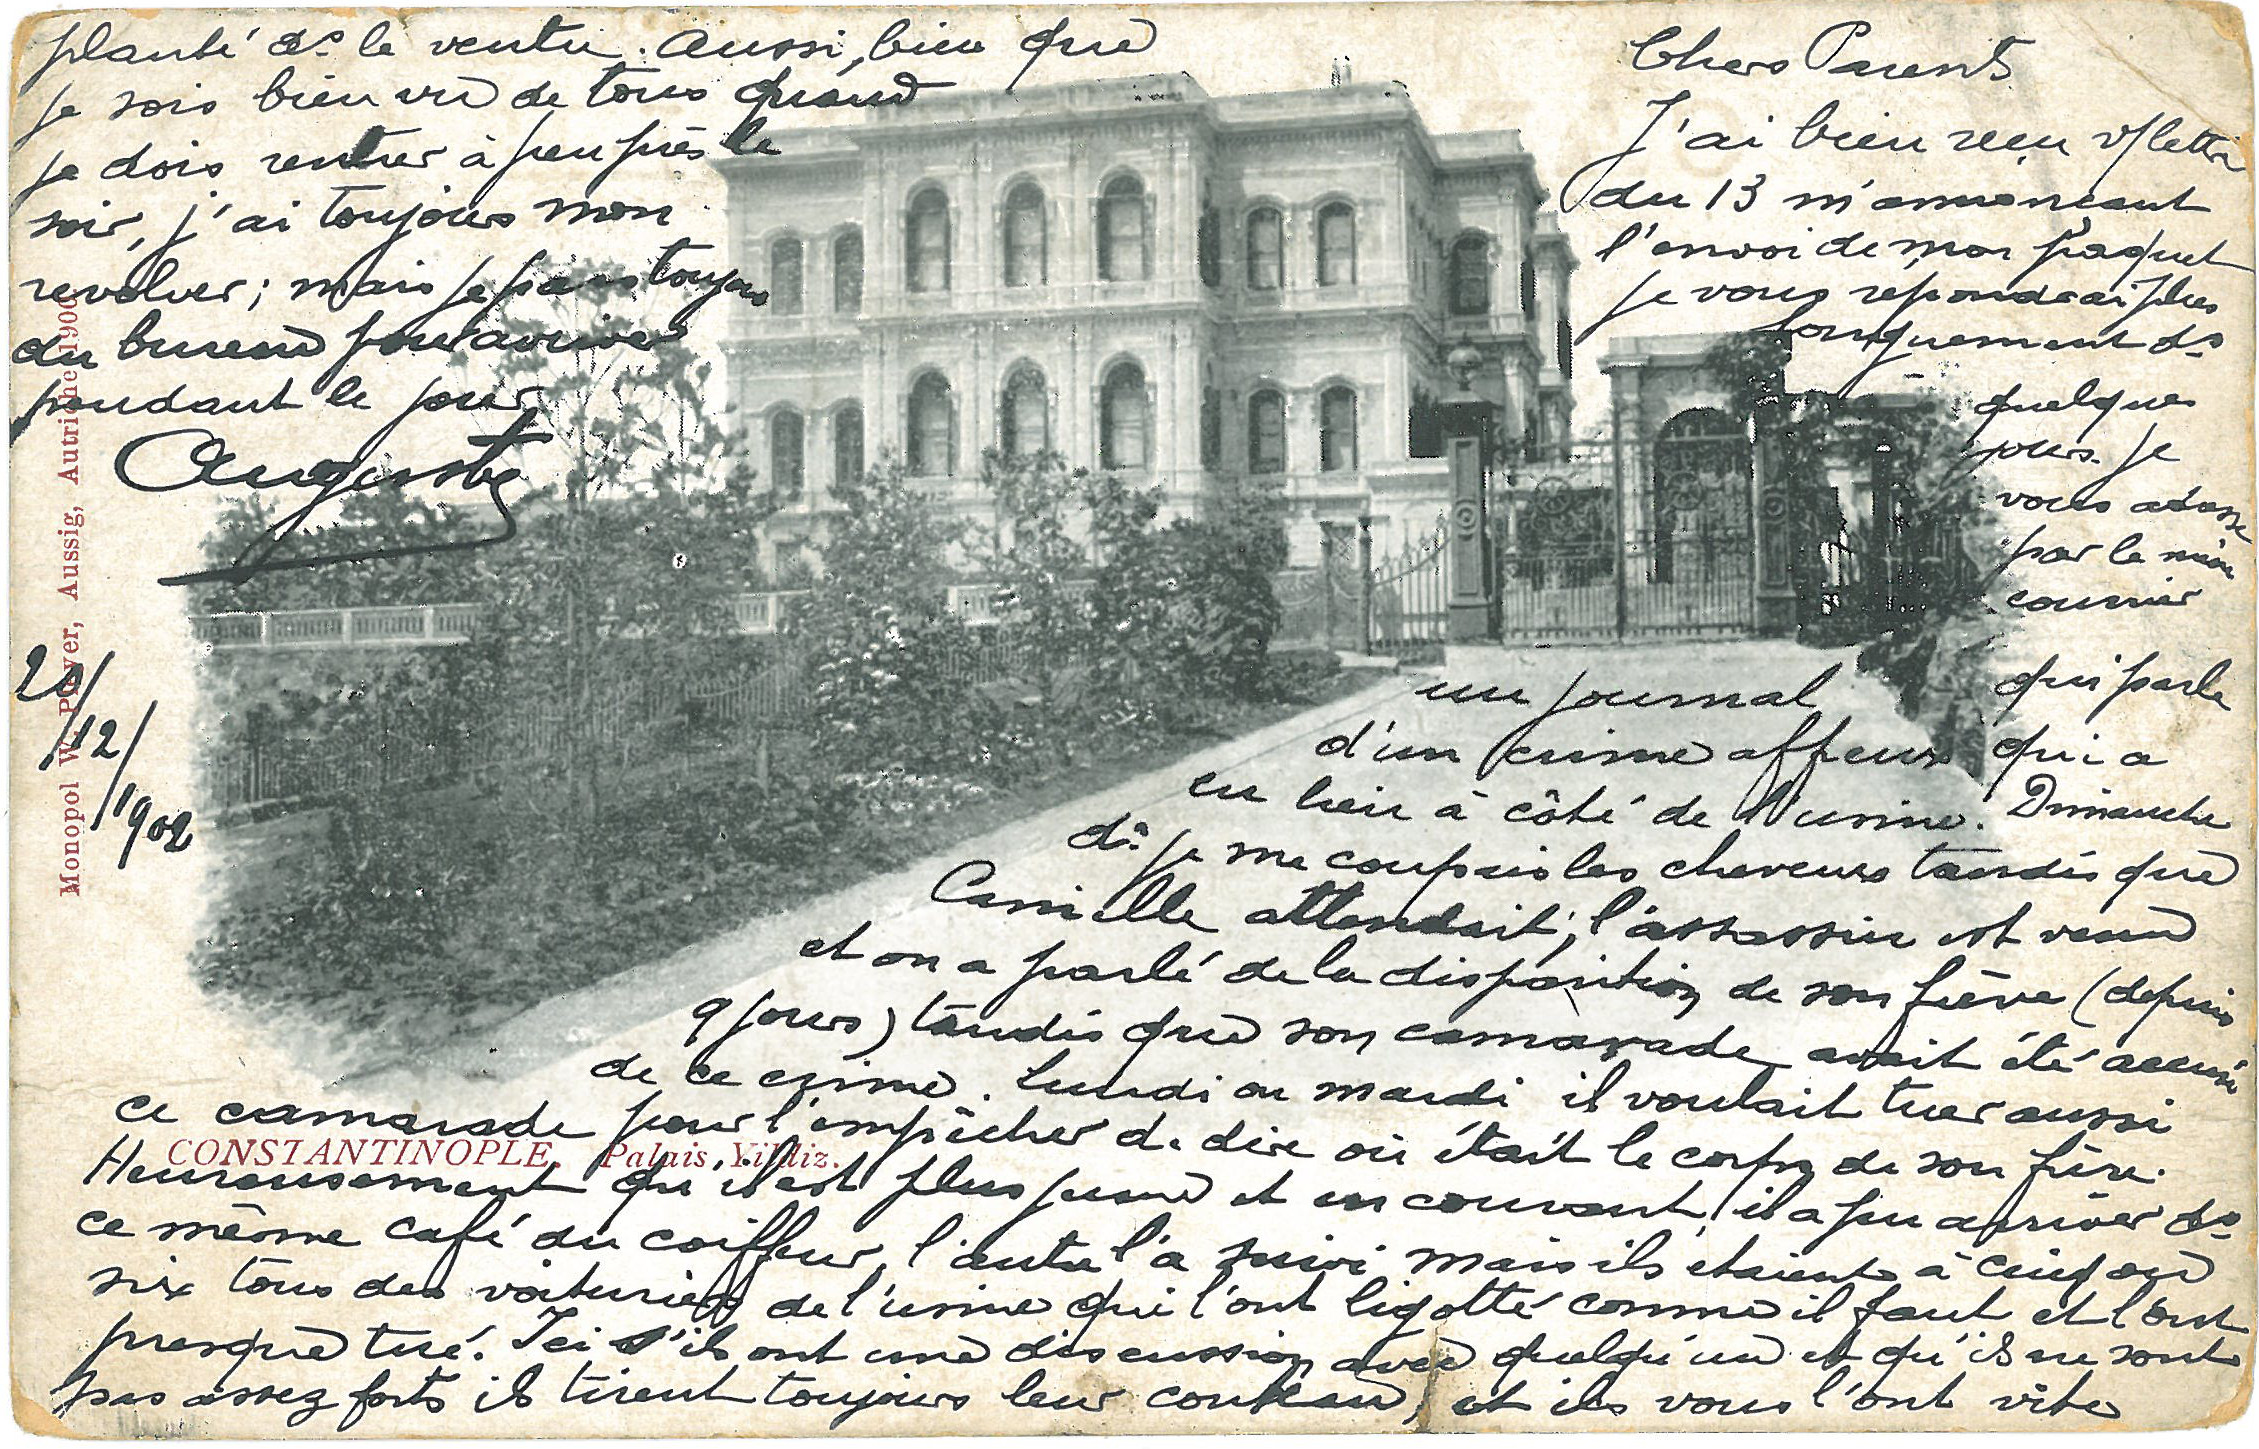 Chers Parents
J'ai bien reçu v/lettre
du 13 m'annoncant
l'envoi de mon paquet
je vous répondrai plus
longuement ds
quelques
jours. Je
vous adresse
par le même
courrier
un journal qui parle
d'un crime affreux qui a
eu lieu à côté de l'usine. Dimanche
dr je me coupais les cheveux tandis que
Camille attendait, l'assassin est venu
et on a parlé de la disparition de son frère (depuis
9 jours) tandis que son camarade avait été accusé
de ce crime. Lundi ou mardi il voulait tuer aussi
ce camarade pour l'empêcher de dire où était le corps de son frère.
Heureusement qu'il est plus jeune et en courant, il a pu arriver ds
ce même café du coiffeur, l'autre l'a suivi mais ils étaient à cinq ou
six tous des voituriers de l'usine qui l'ont ligotté comme il faut et l'ont
presque tué. Ici s'ils ont une discussion avec quelqu'un et qu'ils ne sont
pas assez forts ils tirent toujours leur couteau, et ils vous l'ont vite
planté ds le ventre. Aussi, bien que
je sois bien vu de tous quand
je dois rentrer à peu près le
soir, j'ai toujours mon
revolver; mais je pars toujours
du bureau pour arriver
pendant le jour
Auguste
20/12/1902
CONSTANTINOPLE. Palais Yildiz.
Monopol W. Pichver, Aussig, Autriche 1900